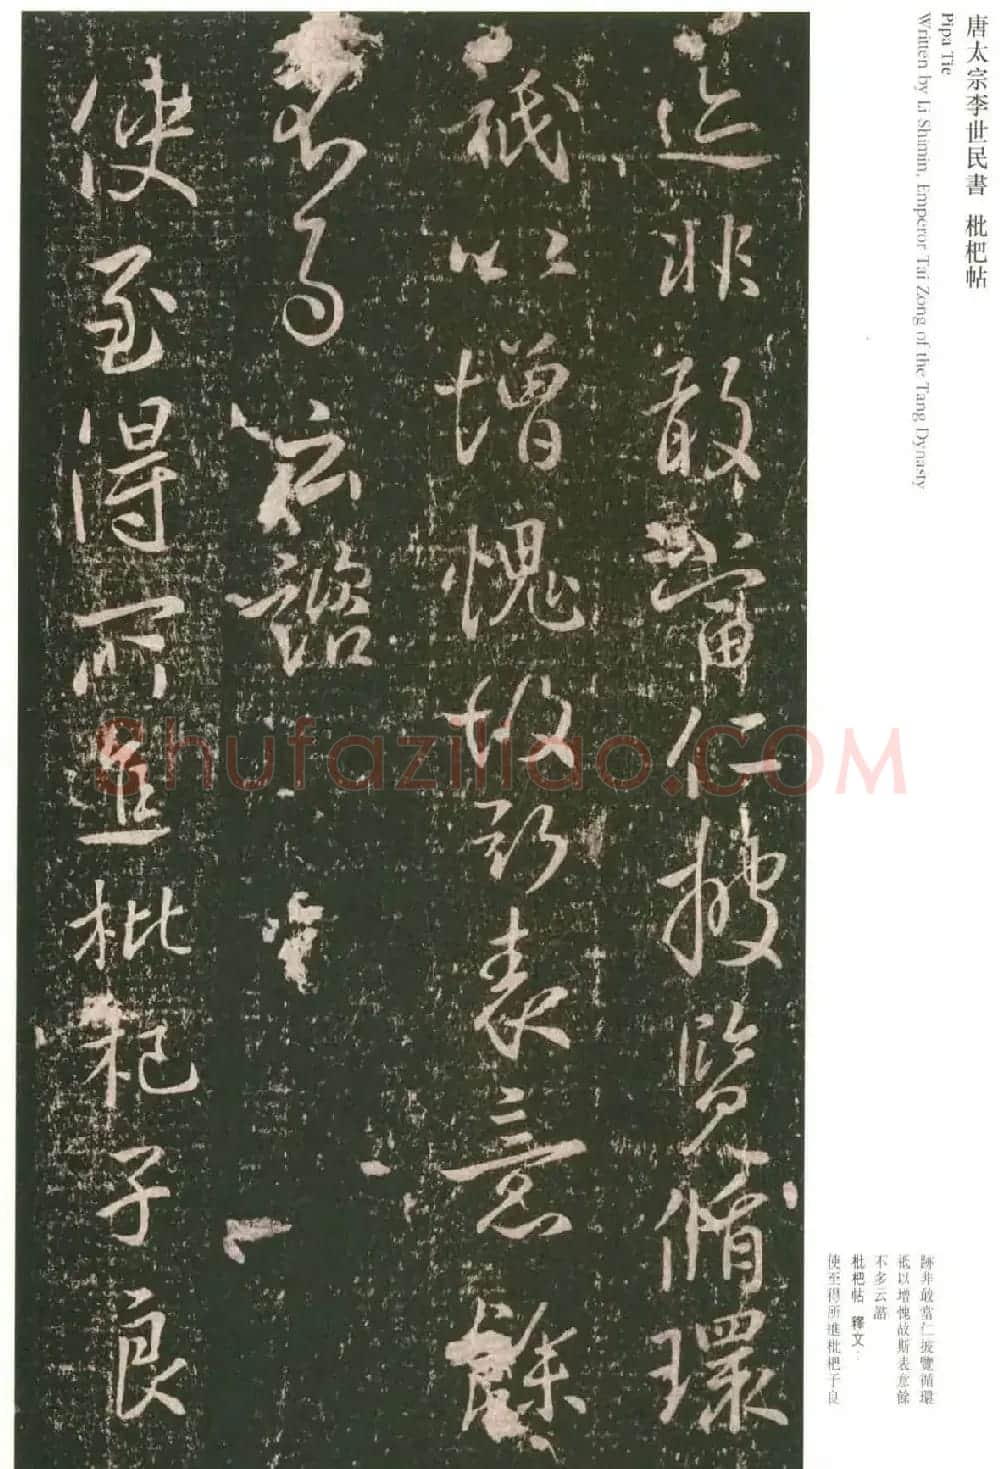 唐太宗李世民書 枇杷帖
Pipa Tie
Written by Li Shimin, Emperor Tai Zong of the Tang Dynasty
跡非敢當仁披覽循環
祗以增愧故斯表意餘
不多云諮
使至得所進枇杷子良
跡非敢當仁披覽循環
祗以增愧故斯表意餘
不多云諮
枇杷帖 釋文:
使至得所進枇杷子良
Shufaziliao.COM